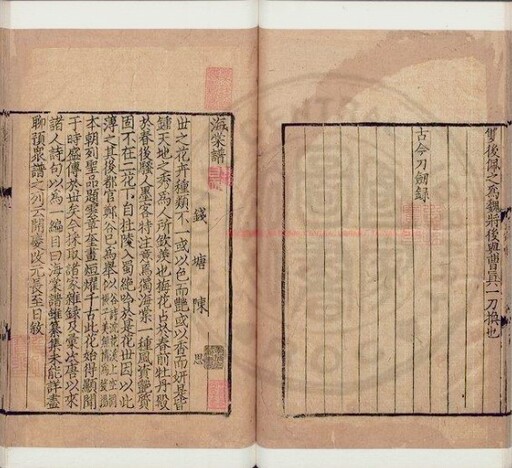 雙後佩之爲魏將後與曹真一刀換也
古今刀劍錄
海棠譜
錢塘陳思
世之花卉種類不一或以色而艷或以香而妍是皆
鍾天地之秀爲人所欽羨也梅花占於春前牡丹殿
於春後騷人墨客特注意焉獨海棠一種風姿艷質
固不在二花下自杜陵入蜀絶吟於是花世因以此
薄之其後都官鄭谷已爲舉似
本朝列聖品題雲章奎畫烜耀千古此花始得顯聞
于時盛傳於世矣今採取諸家雜錄及彙次唐以來
諸人詩句以爲一編目曰海棠譜雖纂集未能詳盡
聊預衆譜之列云開慶改元長至日敘